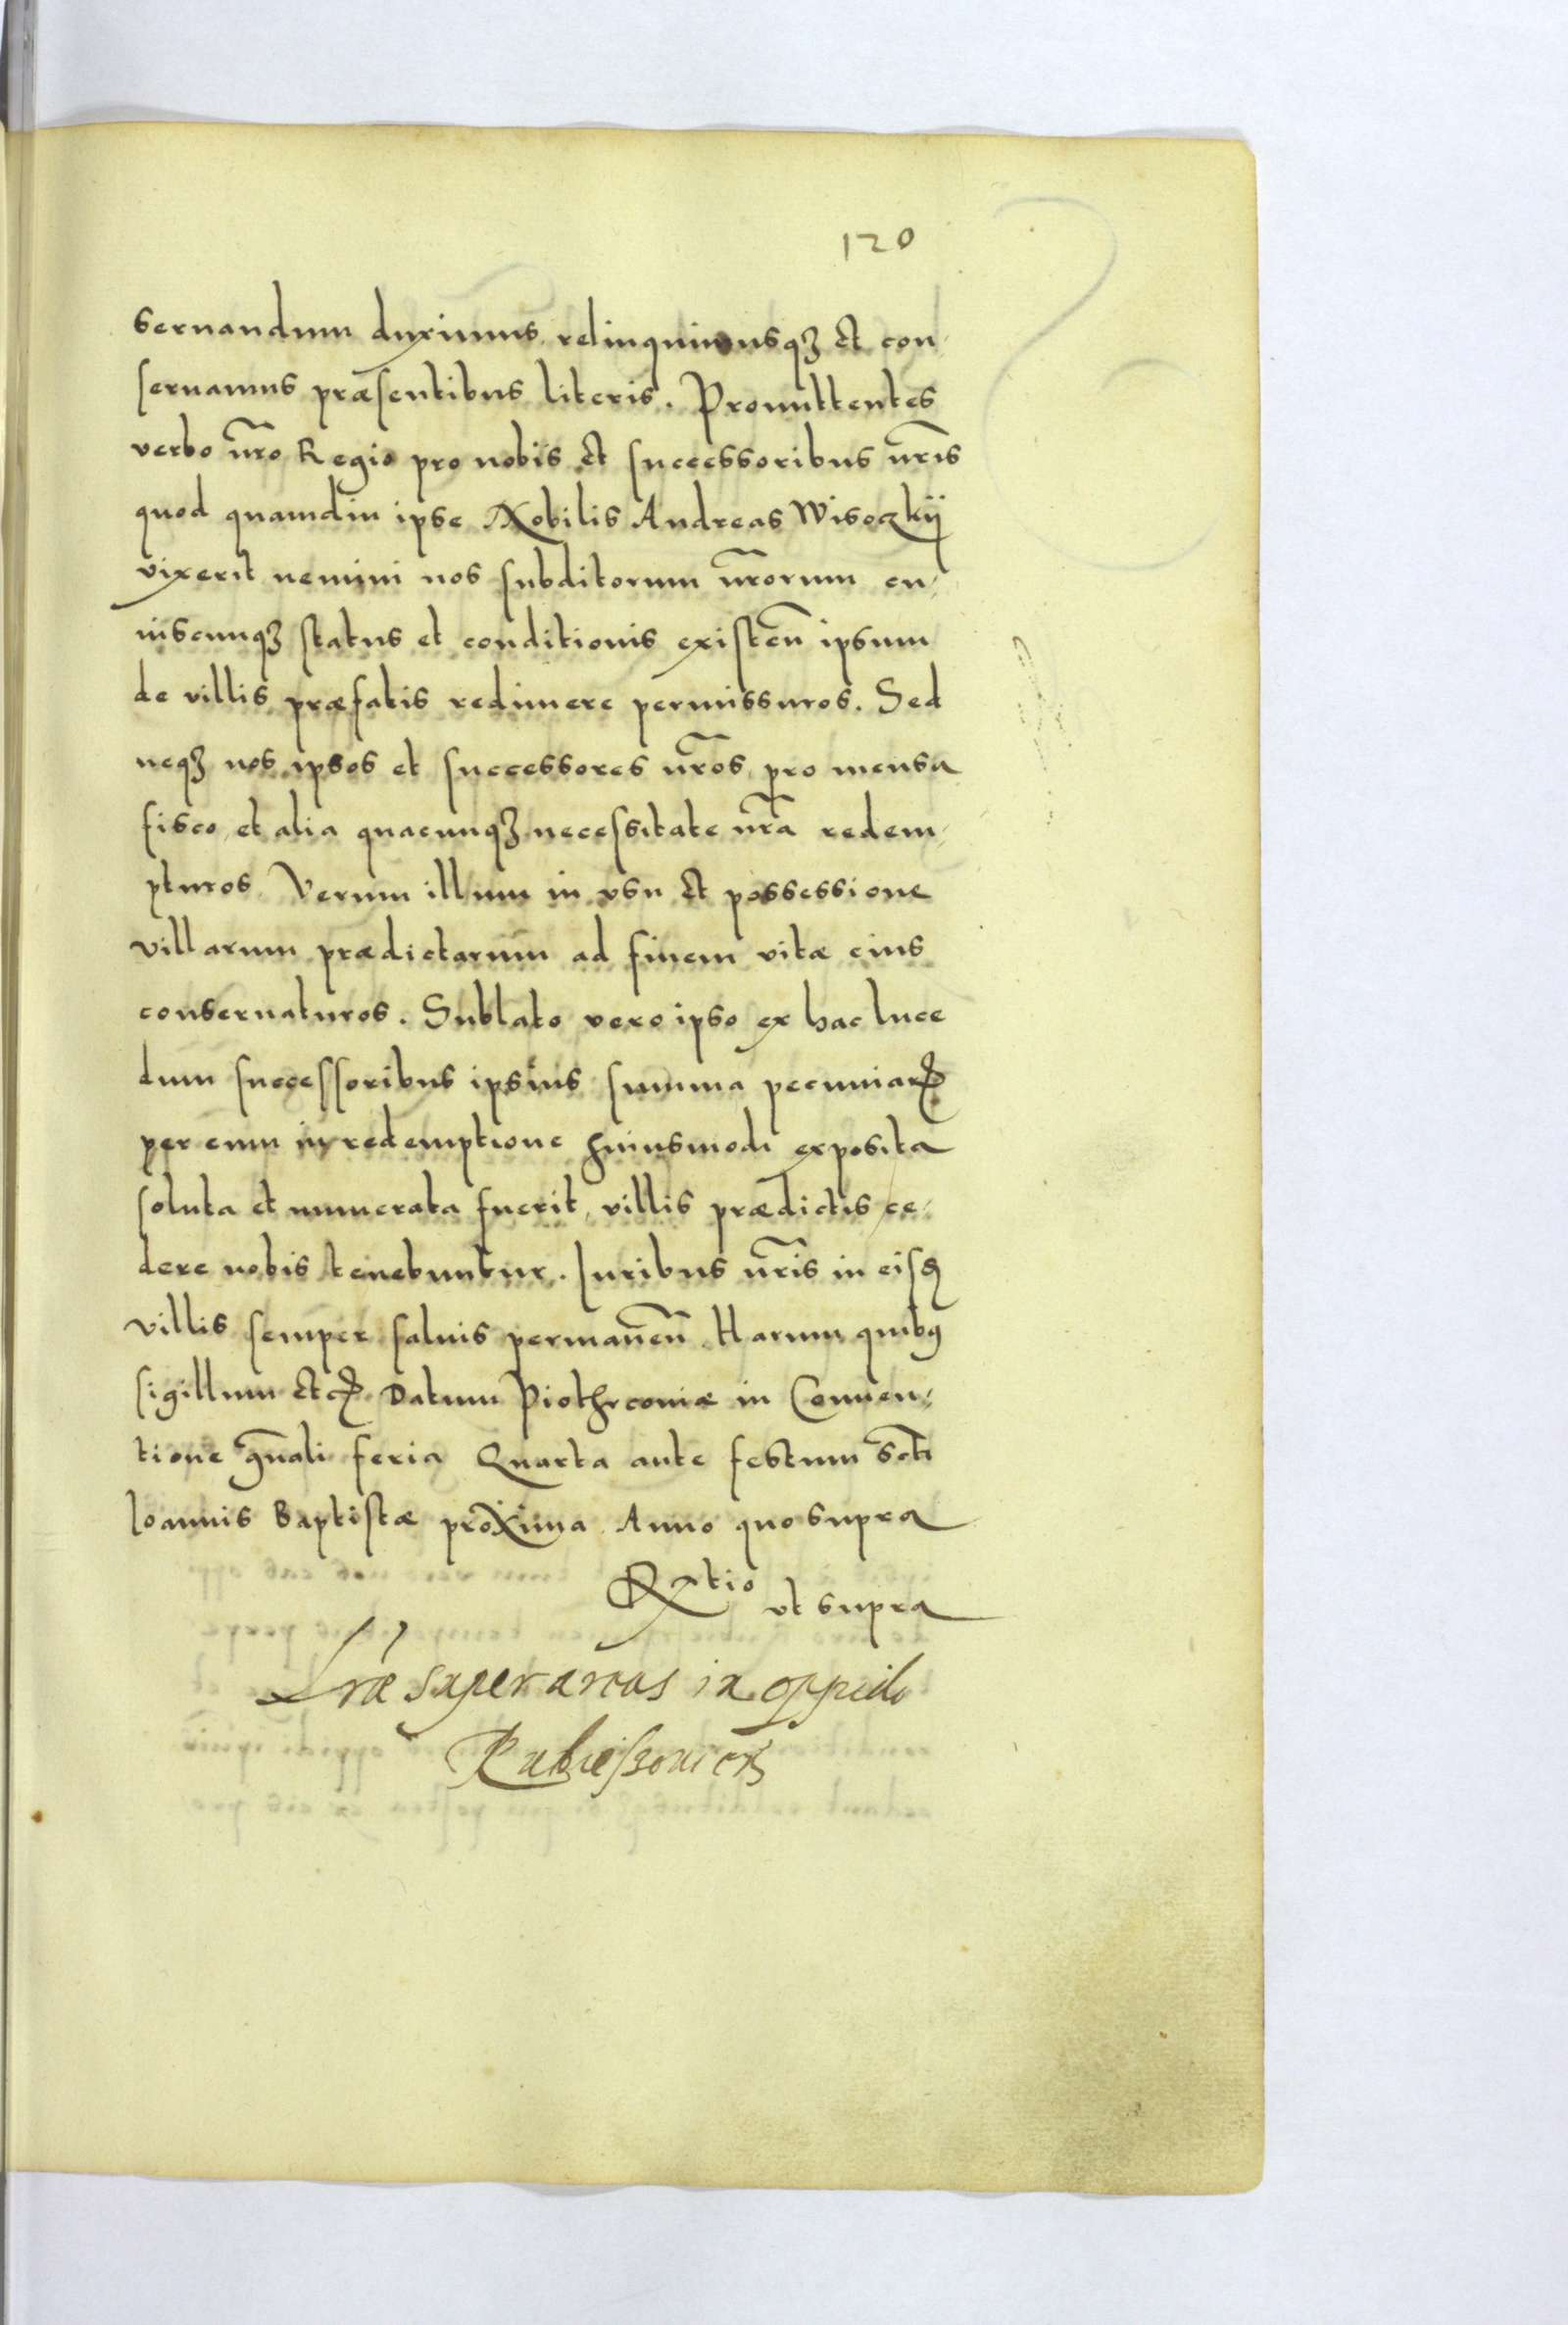 120
seruandum duximus relinquimusqȝ et con
seruamus præsentibus literis. Promittentes
verbo nr̃o Regio pro nobis et successoribus nr̃is
quod quamdiu ipse Nobilis Andreas Wisoczkij
vixerit nemini nos subditorum nr̃orum cu-
iuscunqȝ status et conditionis existeñ ipsum
de villis præfatis redimere permissuros. Sed
neqȝ nos ipsos et successores nr̃os pro mensa
fisco et alia quacunqȝ necessitate nr̃a redem-
pturos Verum illum in vsu et possessione
villarum prædictarum ad finem vitæ eius
conseruaturos. Sublato vero ipso ex hac luce
dum successoribus ipsius summa pecuniarꝝ
per eum in redemptione huiusmodi exposita
soluta et numerata fuerit, villis prædictis ce-
dere nobis tenebuntur. Iuribus nr̃is in eisdꝫ
villis semper saluis permaneñ. Harum quibꝯ
sigillum etcꝝ Datum Piothrconiæ in Conuen-
tione gñali feria Quarta ante festum Scti
Ioannis Baptistæ proxima Anno quo supra
Rxtio vt supra
Lr̃æ super areas in oppido
Rubiessouieñ